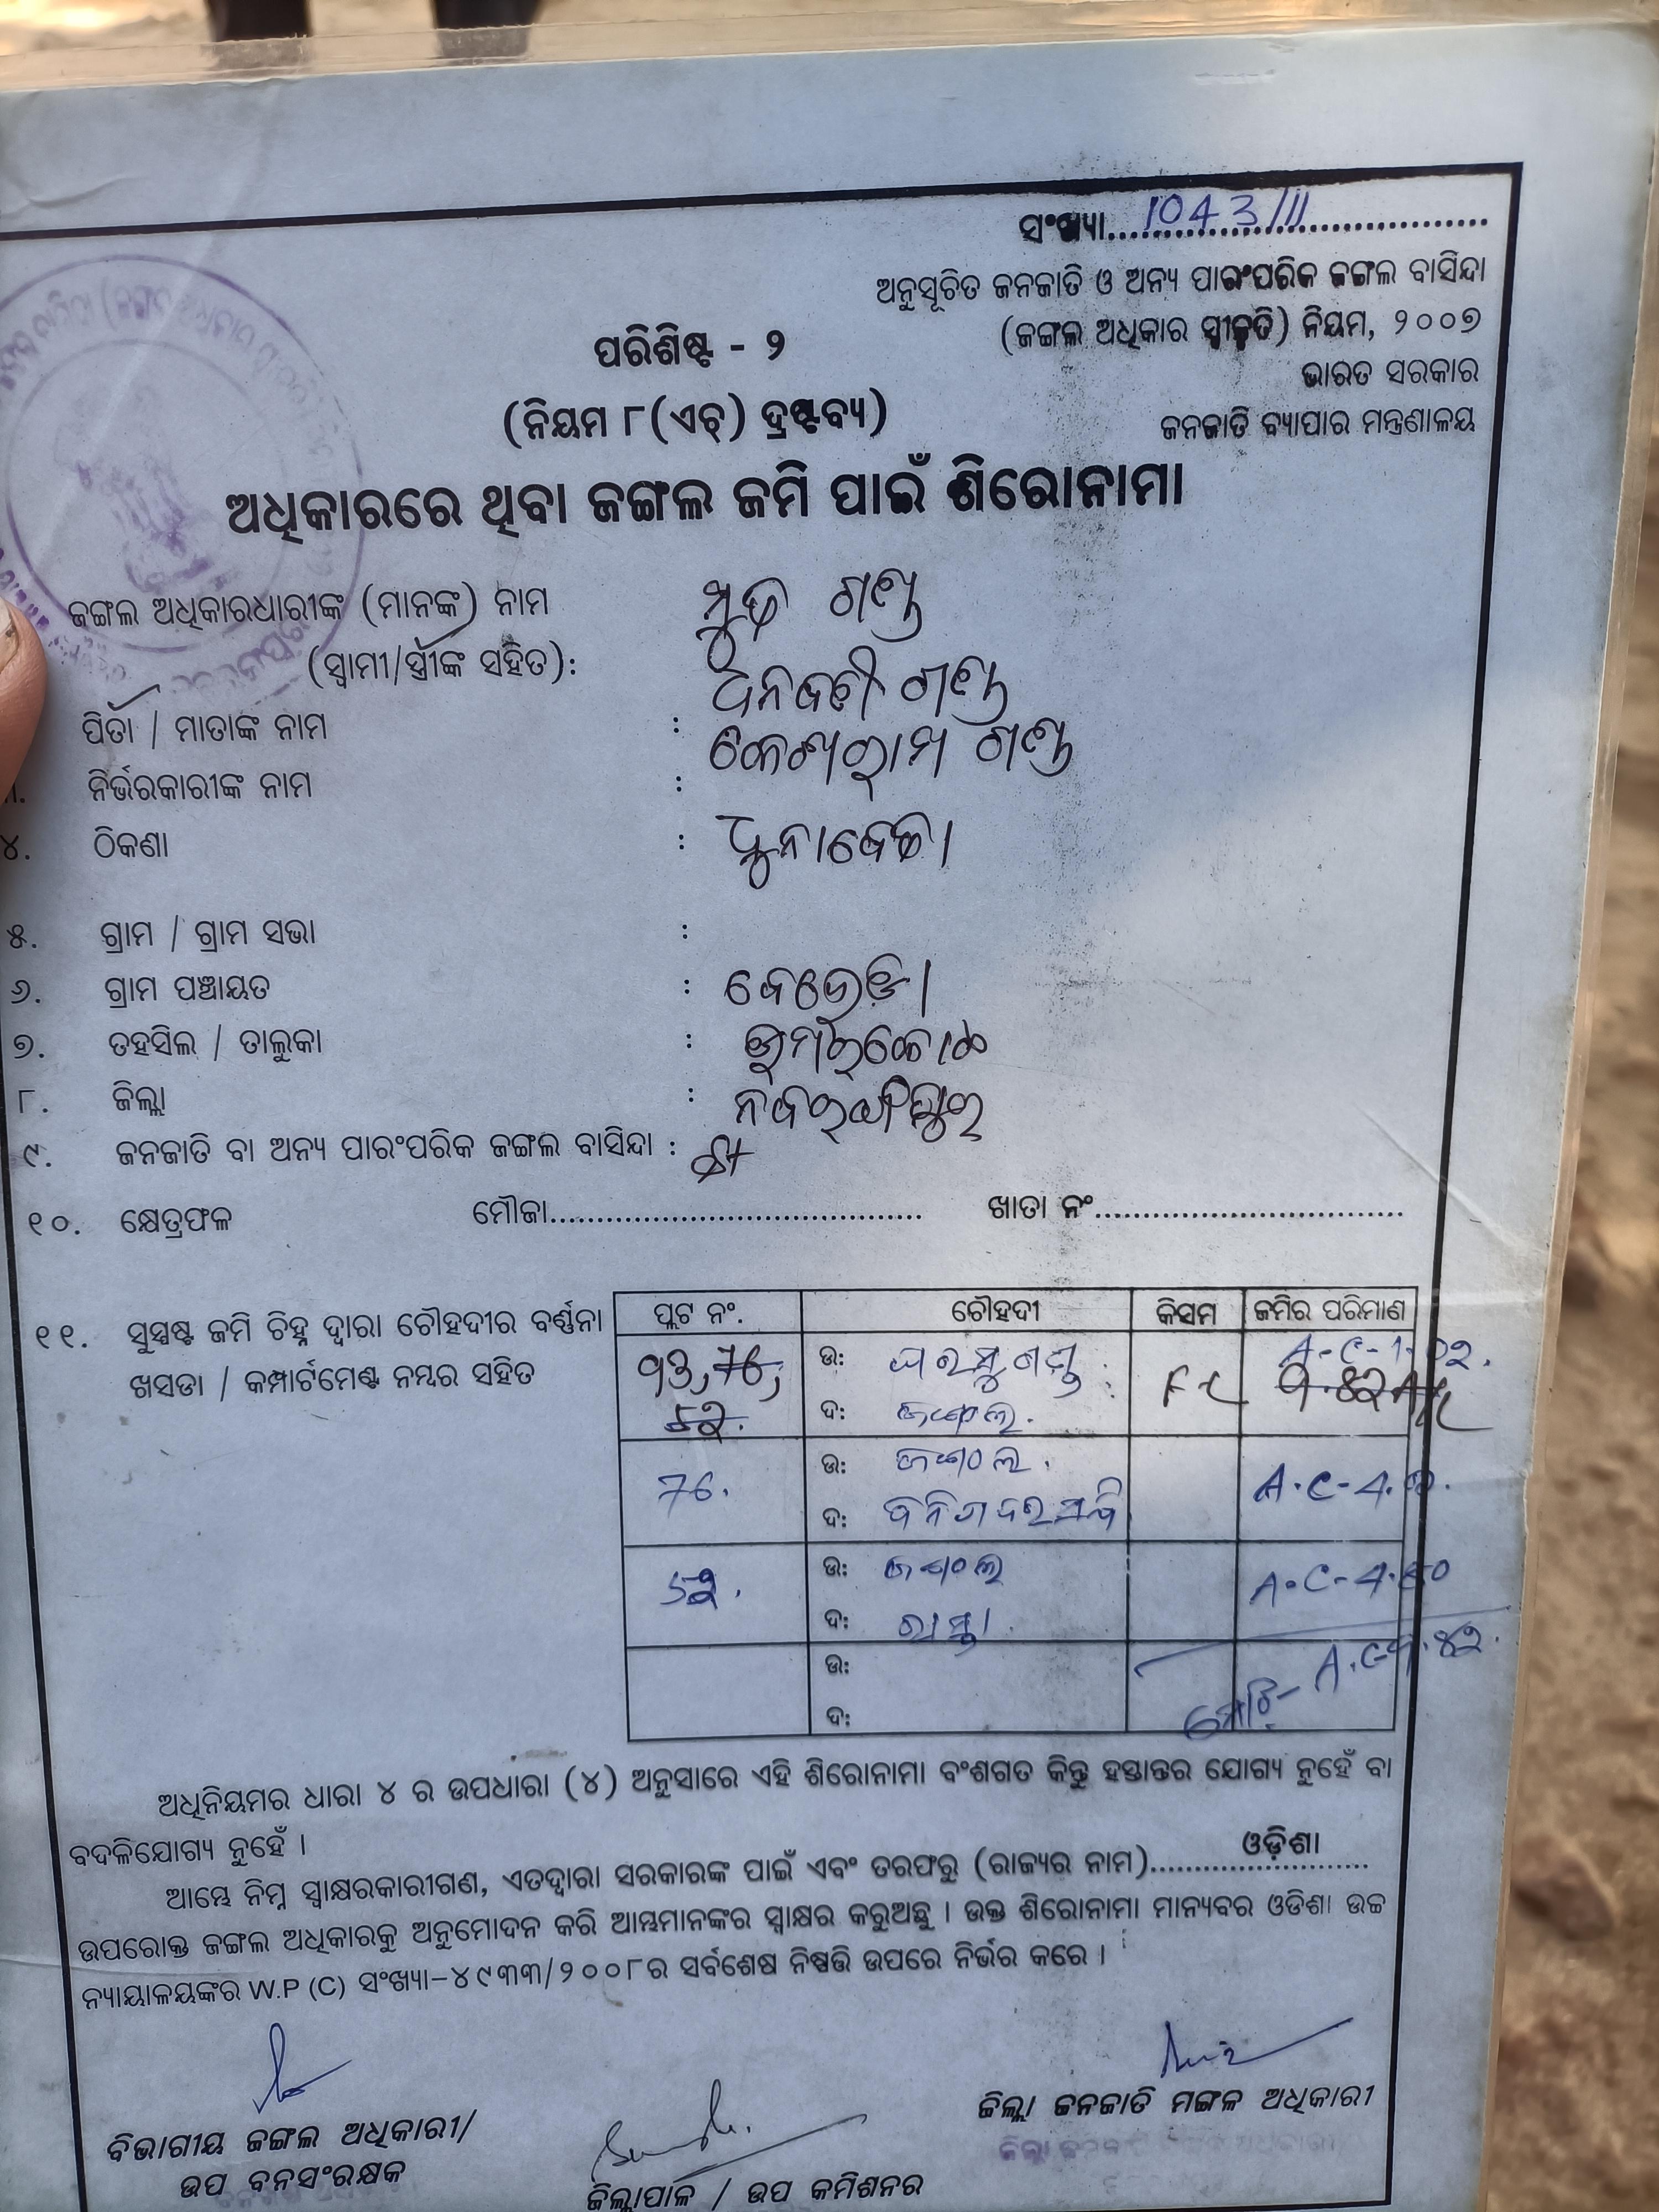 ସଂଖ୍ୟା 1043/11
ଅନୁସୂଚିତ ଜନଜାତି ଓ ଅନ୍ୟ ପାରଂପରିକ ଜଙ୍ଗଲ ବାସିନ୍ଦା
(ଜଙ୍ଗଲ ଅଧିକାର ସ୍ୱୀକୃତି) ନିୟମ, ୨୦୦୭
ପରିଶିଷ୍ଟ - ୨
ଭାରତ ସରକାର
(ନିୟମ ୮(ଏଚ୍) ଦ୍ରଷ୍ଟବ୍ୟ)
ଜନଜାତି ବ୍ୟାପାର ମନ୍ତ୍ରଣାଳୟ
ଅଧିକାରରେ ଥିବା ଜଙ୍ଗଲ ଜମି ପାଇଁ ଶିରୋନାମା
ଜଙ୍ଗଲ ଅଧିକାରଧାରୀଙ୍କ (ମାନଙ୍କ) ନାମ ଗଣ୍ଡ
(ସ୍ୱାମୀ/ସ୍ତ୍ରୀଙ୍କ ସହିତ): ଗଣ୍ଡ
ପିତା / ମାତାଙ୍କ ନାମ : ଗଣ୍ଡ
ନିର୍ଭରକାରୀଙ୍କ ନାମ :
୪. ଠିକଣା : ଧୁନାବେଡା
୫. ଗ୍ରାମ / ଗ୍ରାମ ସଭା :
୬. ଗ୍ରାମ ପଞ୍ଚାୟତ :
୭. ତହସିଲ / ତାଲୁକା : ଉମରକୋଟ
୮. ଜିଲ୍ଲା : ନବରଙ୍ଗପୁର
୯. ଜନଜାତି ବା ଅନ୍ୟ ପାରଂପରିକ ଜଙ୍ଗଲ ବାସିନ୍ଦା : St
୧୦. କ୍ଷେତ୍ରଫଳ ମୌଜା ଖାତା ନଂ
୧୧. ସୁସ୍ପଷ୍ଟ ଜମି ଚିହ୍ନ ଦ୍ୱାରା ଚୌହଦୀର ବର୍ଣ୍ଣନା
ଖସଡା / କମ୍ପାର୍ଟମେଣ୍ଟ ନମ୍ବର ସହିତ
ପ୍ଲଟ ନଂ. ଚୌହଦୀ କିସମ ଜମିର ପରିମାଣ
ଉ: ଗଣ୍ଡ
ଦ: ଜଙ୍ଗଲ
76. ଉ: ଜଙ୍ଗଲ
ଦ:
ଉ: ଜଙ୍ଗଲ
ଦ: ରାସ୍ତା
ଉ:
ଦ:
ଅଧିନିୟମର ଧାରା ୪ ର ଉପଧାରା (୪) ଅନୁସାରେ ଏହି ଶିରୋନାମା ବଂଶଗତ କିନ୍ତୁ ହସ୍ତାନ୍ତର ଯୋଗ୍ୟ ନୁହେଁ ବା
ବଦଳିଯୋଗ୍ୟ ନୁହେଁ ।
ଆମ୍ଭେ ନିମ୍ନ ସ୍ୱାକ୍ଷରକାରୀଗଣ, ଏତଦ୍ୱାରା ସରକାରଙ୍କ ପାଇଁ ଏବଂ ତରଫରୁ (ରାଜ୍ୟର ନାମ) ଓଡ଼ିଶା
ଉପରୋକ୍ତ ଜଙ୍ଗଲ ଅଧିକାରକୁ ଅନୁମୋଦନ କରି ଆମ୍ଭମାନଙ୍କର ସ୍ୱାକ୍ଷର କରୁଅଛୁ । ଉକ୍ତ ଶିରୋନାମା ମାନ୍ୟବର ଓଡିଶା ଉଚ୍ଚ
ନ୍ୟାୟାଳୟଙ୍କର W.P (C) ସଂଖ୍ୟା-୪୯୩୩/୨୦୦୮ର ସର୍ବଶେଷ ନିଷ୍ପତ୍ତି ଉପରେ ନିର୍ଭର କରେ ।
ଜିଲ୍ଲା ଜନଜାତି ମଙ୍ଗଳ ଅଧିକାରୀ
ବିଭାଗୀୟ ଜଙ୍ଗଲ ଅଧିକାରୀ/
ଉପ ବନସଂରକ୍ଷକ
ଜିଲ୍ଲାପାଳ / ଉପ କମିଶନର